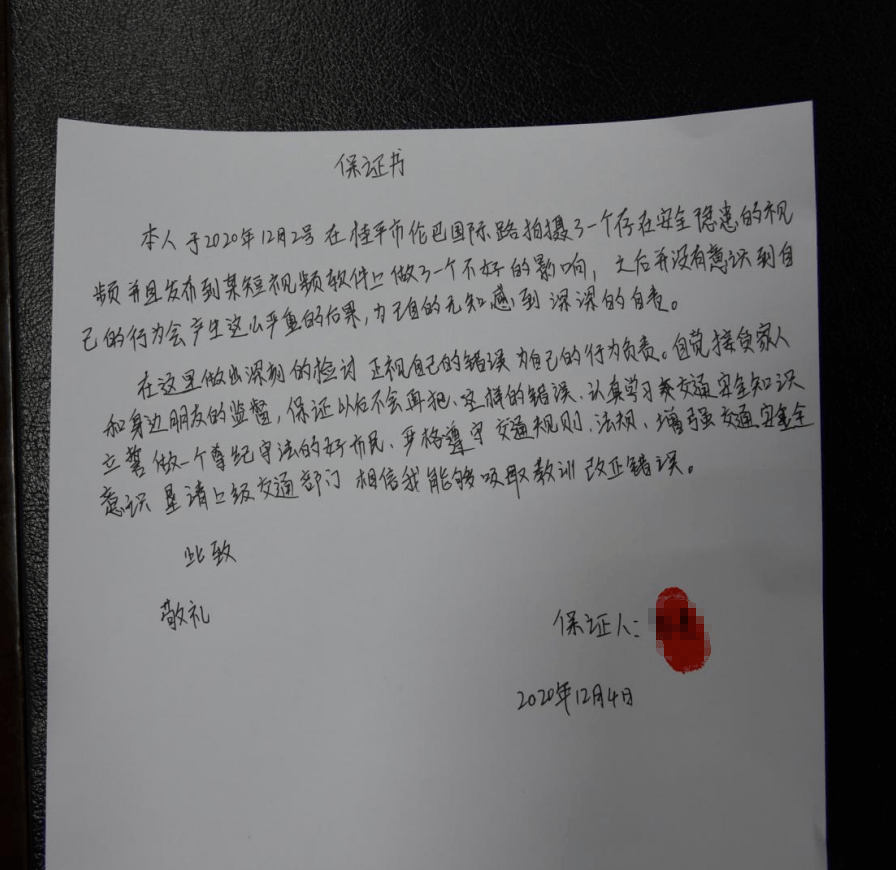 保证书
本人于2020年12月2号在桂平市伦巴国际路拍摄了一个存在安全隐患的视
频并且发布到某短视频软件上做了一个不好的影响，之后并没有意识到自
己的行为会产生这么严重的后果，为自的无知感到深深的自责。
在这里做出深刻的检讨 正视自己的错误 为自己的行为负责。自觉接负家人
和身边朋友的监督，保证以后不会再犯、这样的错误、认真学习类交通安全知识
立誓做一个尊纪守法的好市民、严格遵守交通规则、法规、增强交通安全
意识 垦请上级交通部门 相信我能够吸取教训 改正错误。
此致
敬礼
保证人：
2020年12月4日